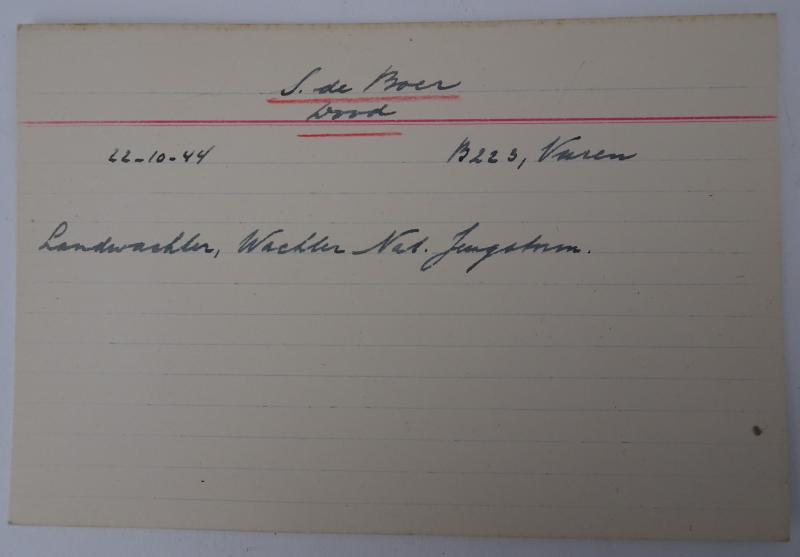 S. de Boer
Dood
22-10-44 B223, Vuren
Landwachter, Wachter Nat. Jeugdstorm.